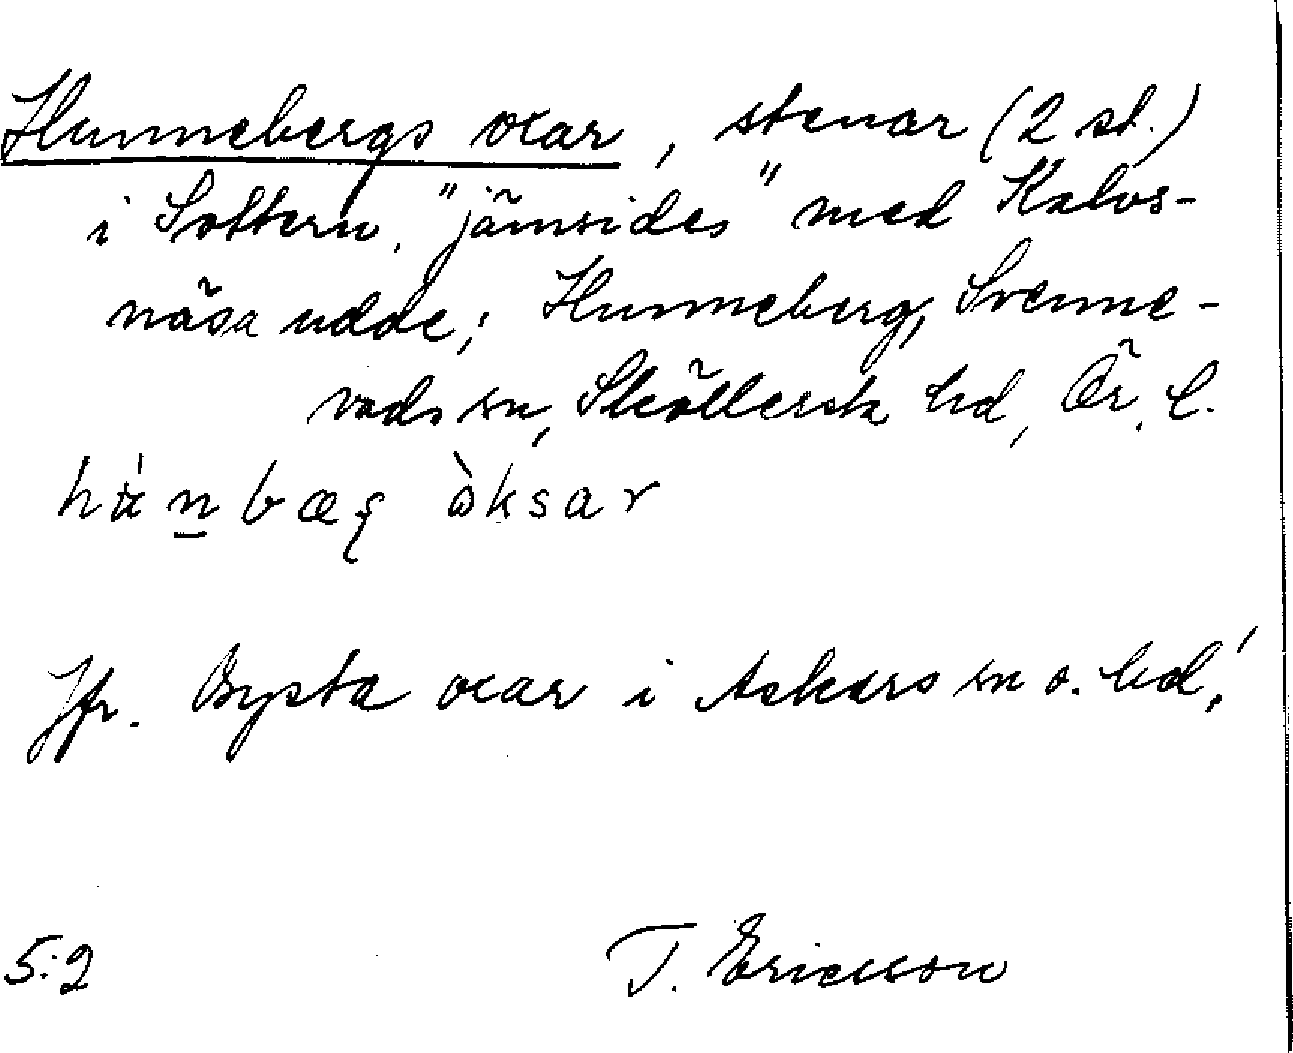 Hunnebergs oxar, stenar (2 st.)
i Sottern, "jämsides" med Kalvs-
näsa udde; Hunneberg, Svenne-
vads sn, Sköllersta hd, Ör. l.
bæq òksar
Jfr. Bysta oxar i Askers sn o. hd!
5:2 T. Ericsson